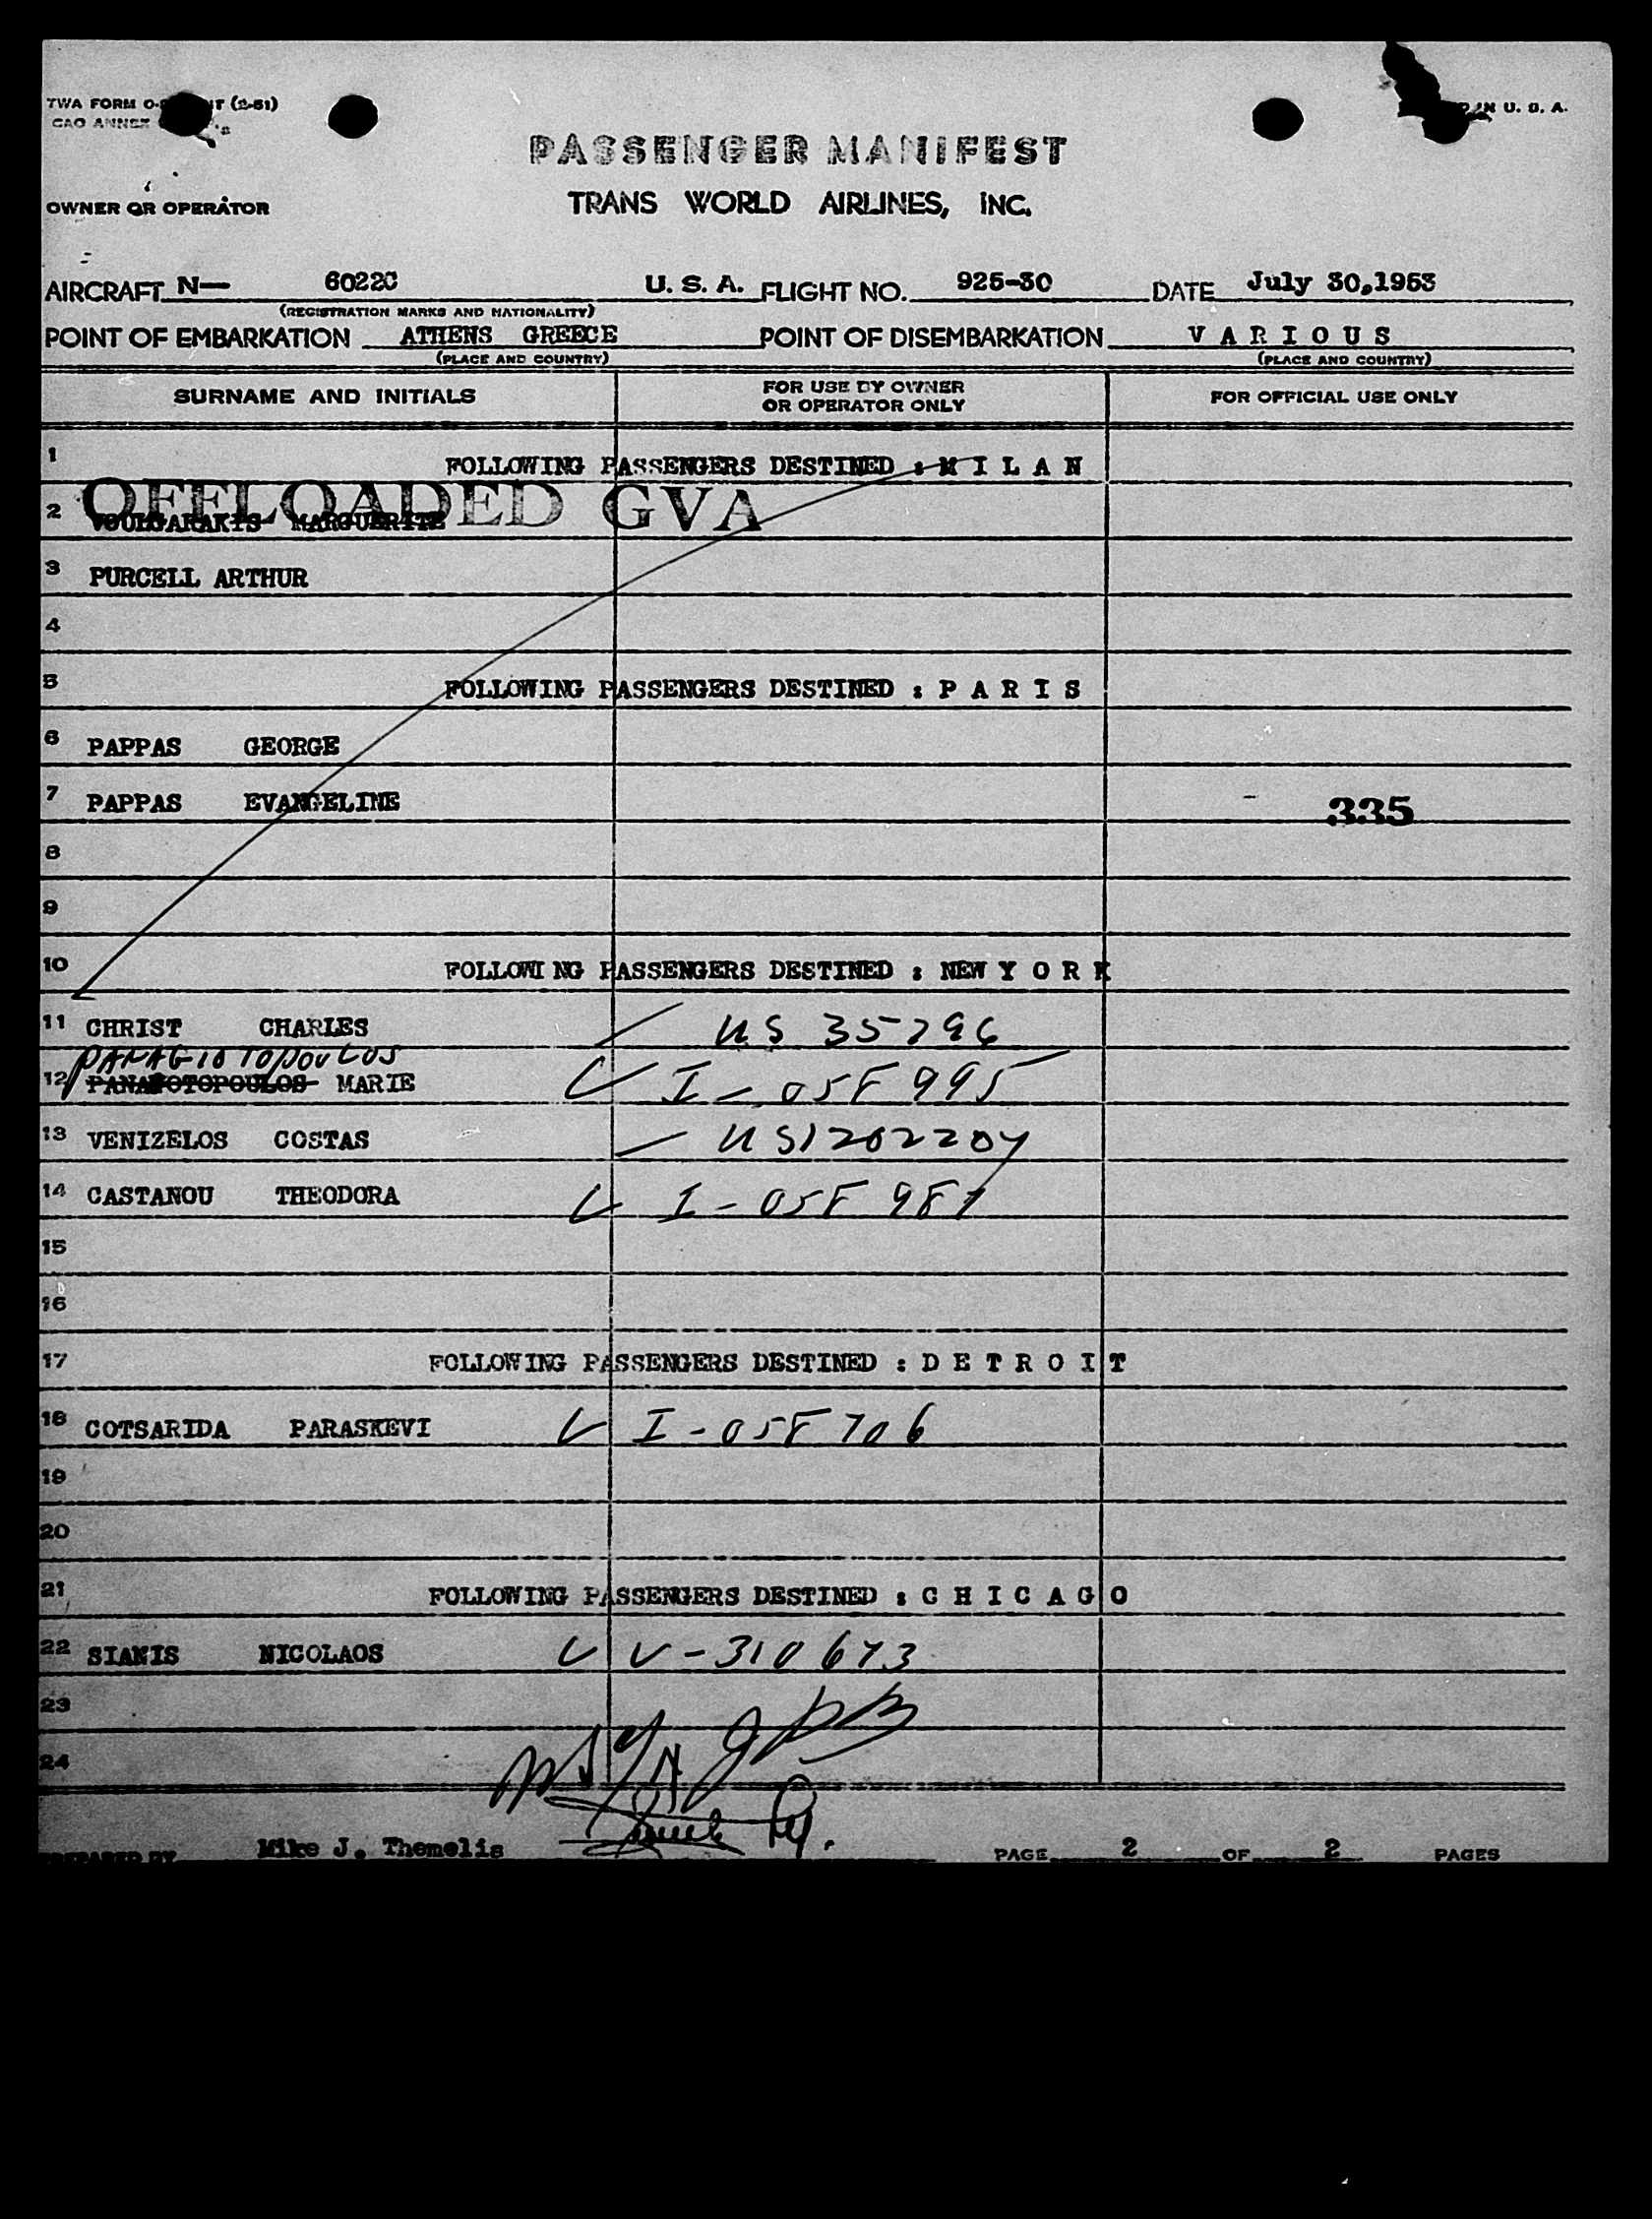 TWA FORM O- (2-51)
CAO ANNEX
IN U. S. A.
PASSENGER MANIFEST
OWNER OR OPERATOR
TRANS WORLD AIRLINES, INC.
AIRCRAFT N— 6022C U. S. A. FLIGHT NO. 925-30 DATE July 30,1953
(REGISTRATION MARKS AND NATIONALITY)
POINT OF EMBARKATION ATHENS GREECE POINT OF DISEMBARKATION V A R I O U S
(PLACE AND COUNTRY) (PLACE AND COUNTRY)
SURNAME AND INITIALS FOR USE BY OWNER OR OPERATOR ONLY FOR OFFICIAL USE ONLY
1 FOLLOWING PASSENGERS DESTINED : M I L A N
OFFLOADED GVA
2 VOULGARAKIS MARGUERITE
3 PURCELL ARTHUR
4
5 FOLLOWING PASSENGERS DESTINED : P A R I S
6 PAPPAS GEORGE
7 PAPPAS EVANGELINE 335
8
9
10 FOLLOWI NG PASSENGERS DESTINED : NEW Y O R K
11 CHRIST CHARLES US 35796
PANAGIOTOPOULOS
12 MARIE I-058995
13 VENIZELOS COSTAS US1202204
14 CASTANOU THEODORA I-058981
15
16
17 FOLLOWING PASSENGERS DESTINED : D E T R O I T
18 COTSARIDA PARASKEVI I-058706
19
20
21 FOLLOWING PASSENGERS DESTINED : C H I C A G O
22 SIAKIS NICOLAOS V-310673
23
24
PREPARED BY Mike J. Themelis PAGE 2 OF 2 PAGES